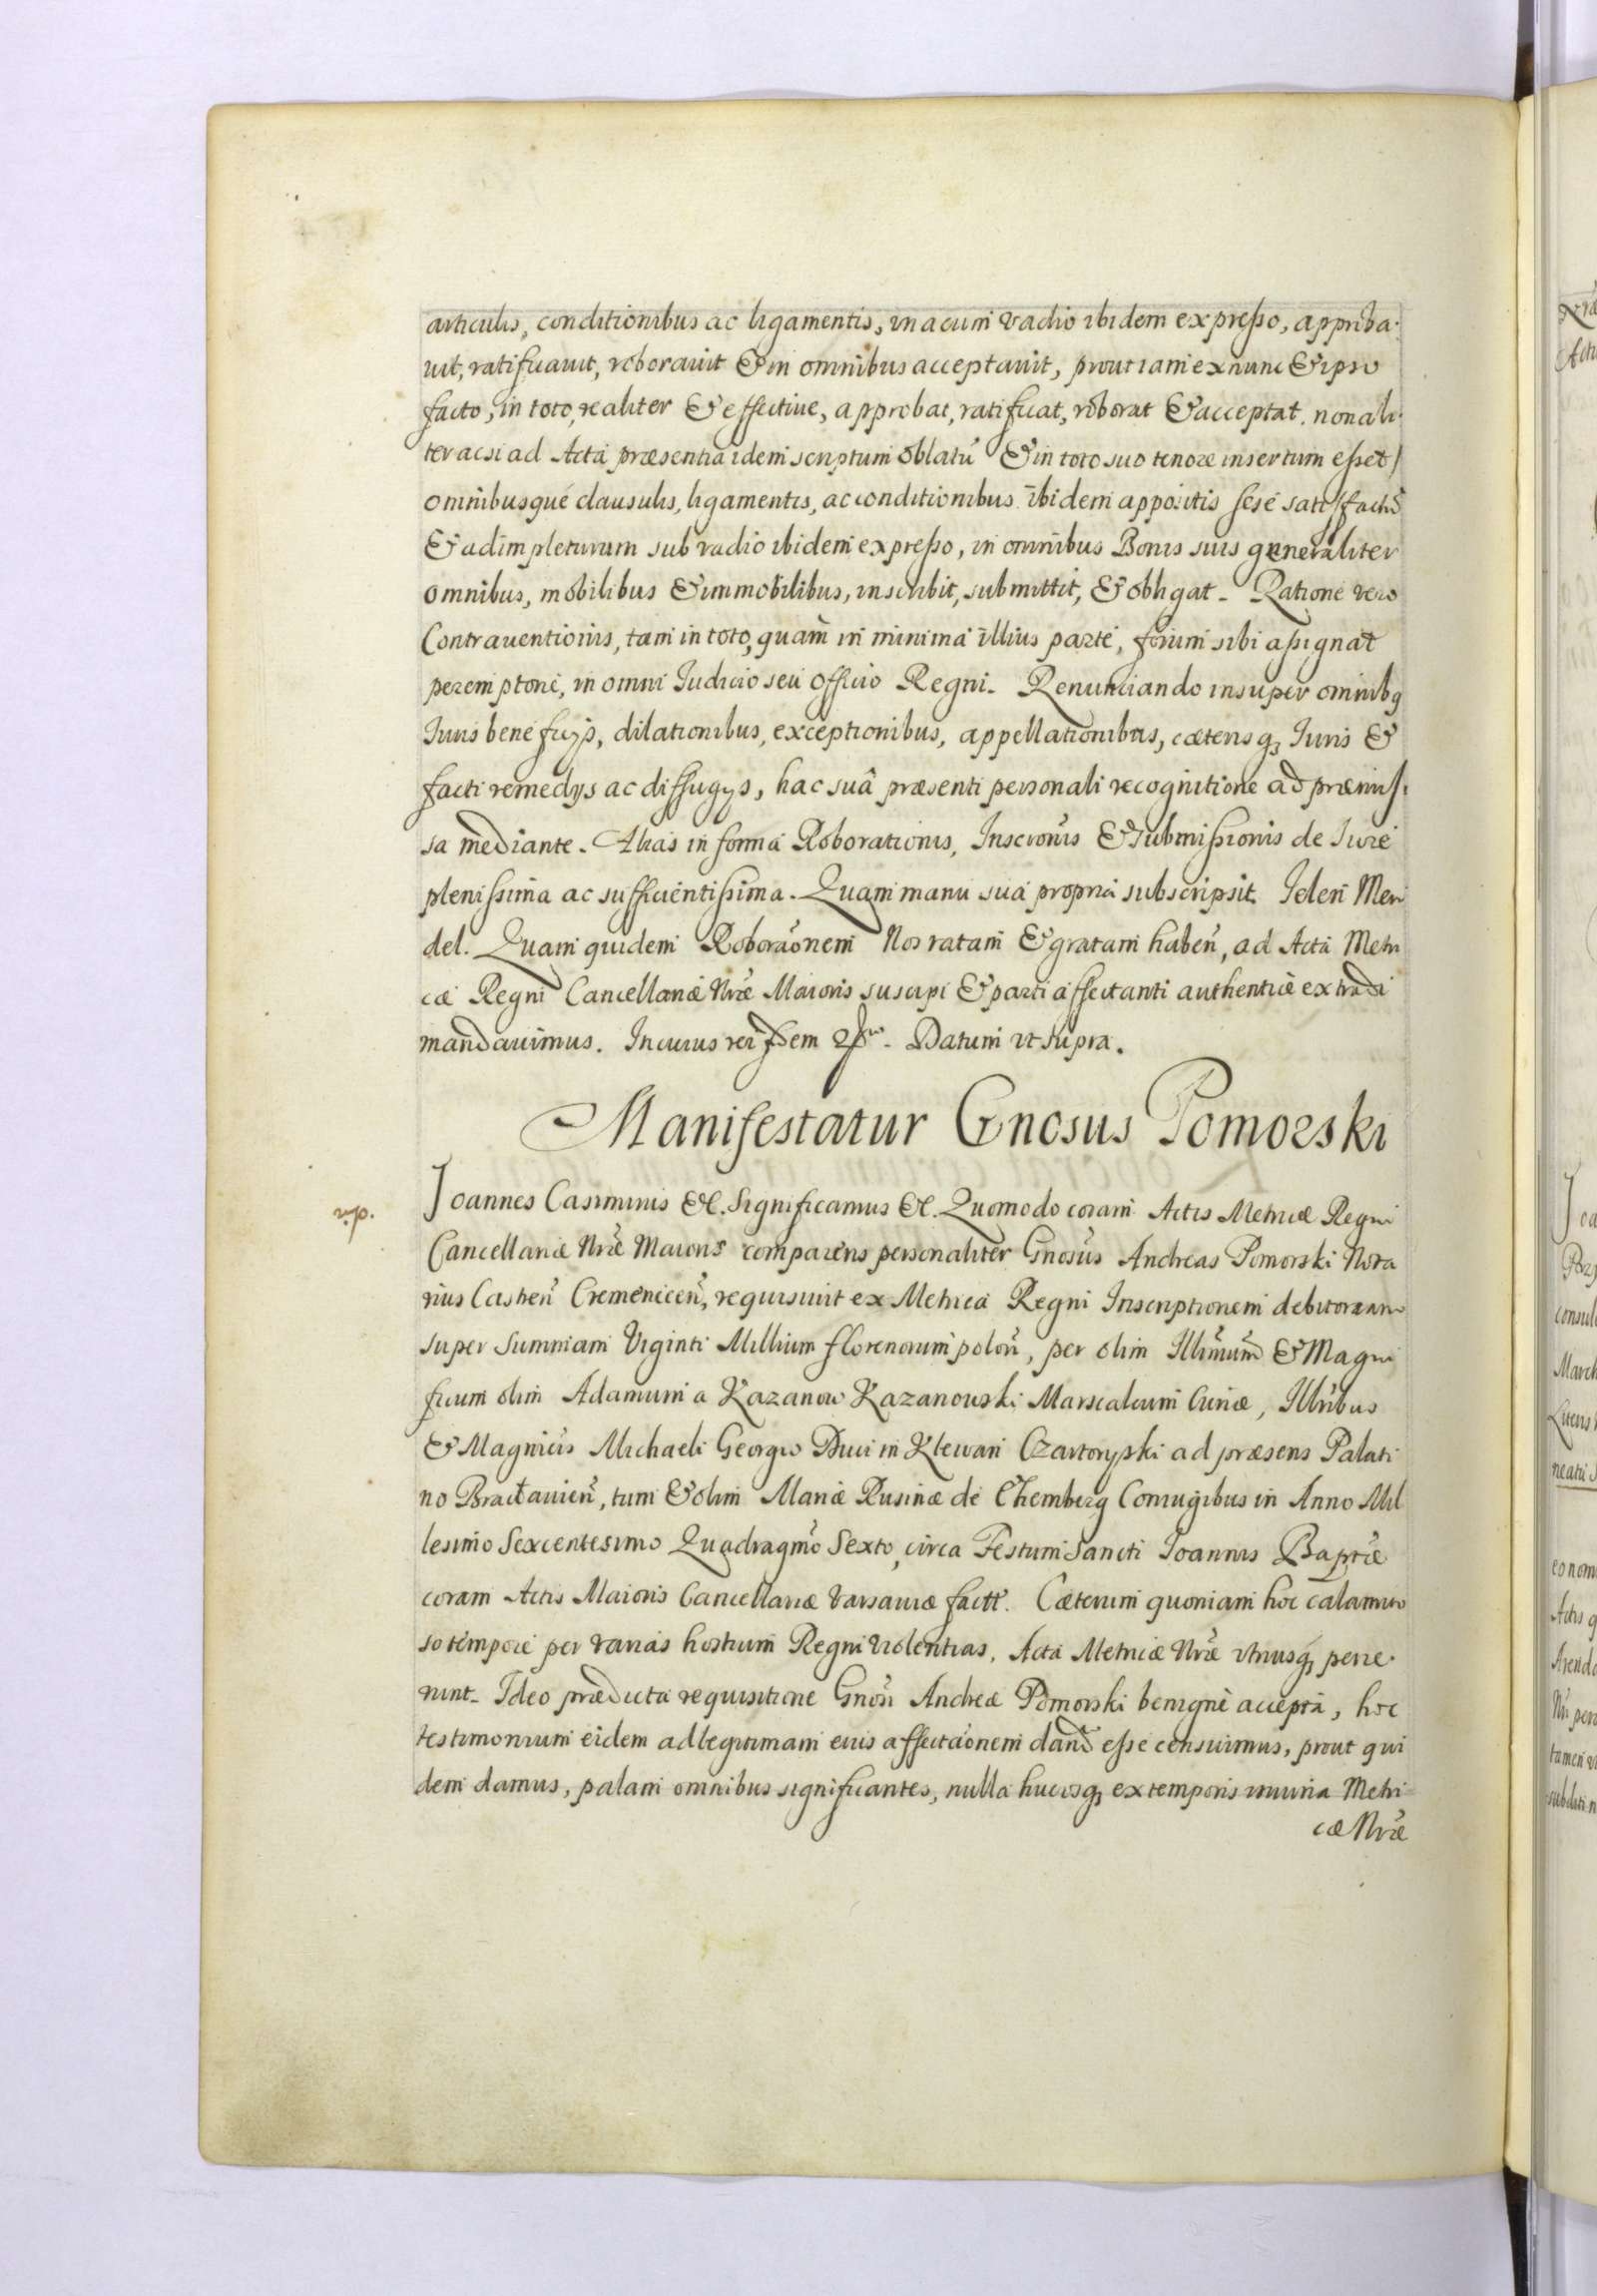 articulis, conditionibus ac ligamentis, unacum vadio ibidem expresso, approba-
uit, ratificauit, roborauit & in omnibus acceptauit, prout iam ex nunc & ipso
facto, in toto, realiter & effectiue, approbat, ratificat, roborat & acceptat. non ali-
ter acsi ad Acta præsentia idem scriptum oblatũ & in toto suo tenore insertum esset/
omnibusque clausulis, ligamentis, ac conditionibus ibidem appositis sese satisfactũ
& adimpleturum sub vadio ibidem expresso, in omnibus Bonis suis generaliter
omnibus, mobilibus & immobilibus, inscribit, submittit, & obligat - Ratione vero
Contrauentionis, tam in toto, quam in minima illius parte, forum sibi assignat
peremptorie, in omni Iudicio seu Officio Regni. Renunciando insuper omnibq
Iuris beneficijs, dilationibus, exceptionibus, appellationibus, cæterisq, Iuris &
facti remedijs ac diffugijs, hac suâ præsenti personali recognitione ad præmis-
sa mediante. Alias in forma Roborationis, Inscrõnis & Submissionis de Iure
plenissima ac sufficientissima. Quam manu sua propria subscripsit Idem Men
del. Quam quidem Roboraõnem Nos ratam & gratam habeñ, ad Acta Metri
cæ Regni Cancellariæ Nræ Maioris suscipi & parti affectanti authenticè extradi
mandauimus. In cuius rei fidem Datum vt supra.
Manifestatur Gnosus Pomorski
Joannes Casimirus &c. Significamus &c. Quomodo coram Actis Metricæ Regni
Cancellariæ Nræ Maioris comparens personaliter Gnosus Andreas Pomorski Nota
rius Castreñ Cremenecen, requisiuit ex Metrica Regni Inscriptionem debitoriam
super Summam Viginti Millium florenorum poloñ, per olim Illrmum & Magni
ficum olim Adamum a Kazanow Kazanowski Marscalcum Curiæ, Illribus
& Magnicis Michaeli Georgio Duci in Klewan Czartoryski ad præsens Palati
no Bracłauieñ, tum & olim Mariæ Rusinæ de Chemberg Coniugibus in Anno Mil
lesimo Sexcentesimo Quadragmo Sexto, circa Festum Sancti Joannis Baptæ
coram Actis Maioris Cancellariæ Varsauiæ factt. Cæterum quoniam hoc calamito
so tempore per varias hostium Regni violentias, Acta Metricæ Nræ vtriusq, perie-
runt - Ideo prædicta requisitione Gnosi Andreæ Pomorski benignè accepta, hoc
testimonium eidem ad legitimam eius affectaõnem dand esse censuimus, prout qui
dem damus, palam omnibus significantes, nulla hucusq, ex temporis iniuria Metri-
cæ Nræ